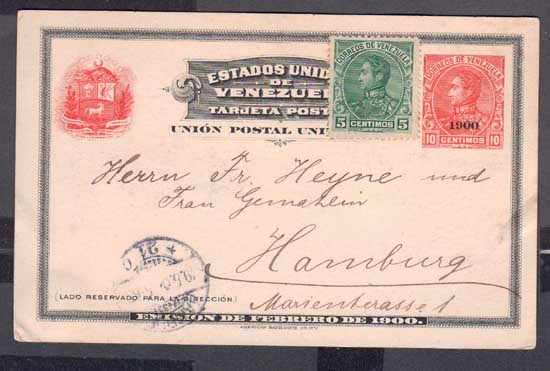 ESTADOS UNID
DE
VENEZUEL
TARJETA POST
UNIÓN POSTAL UNI
CORREOS DE VENEZUELA
5 CENTIMOS 5
CORREOS DE VENEZUELA
1900
10 CENTIMOS 10
Herrn Fr. Heyne und
Frau Gemahlin
Hamburg
Marienterasse 1
(LADO RESERVADO PARA LA DIRECCIÓN.)
EMISIÓN DE FEBRERO DE 1900.